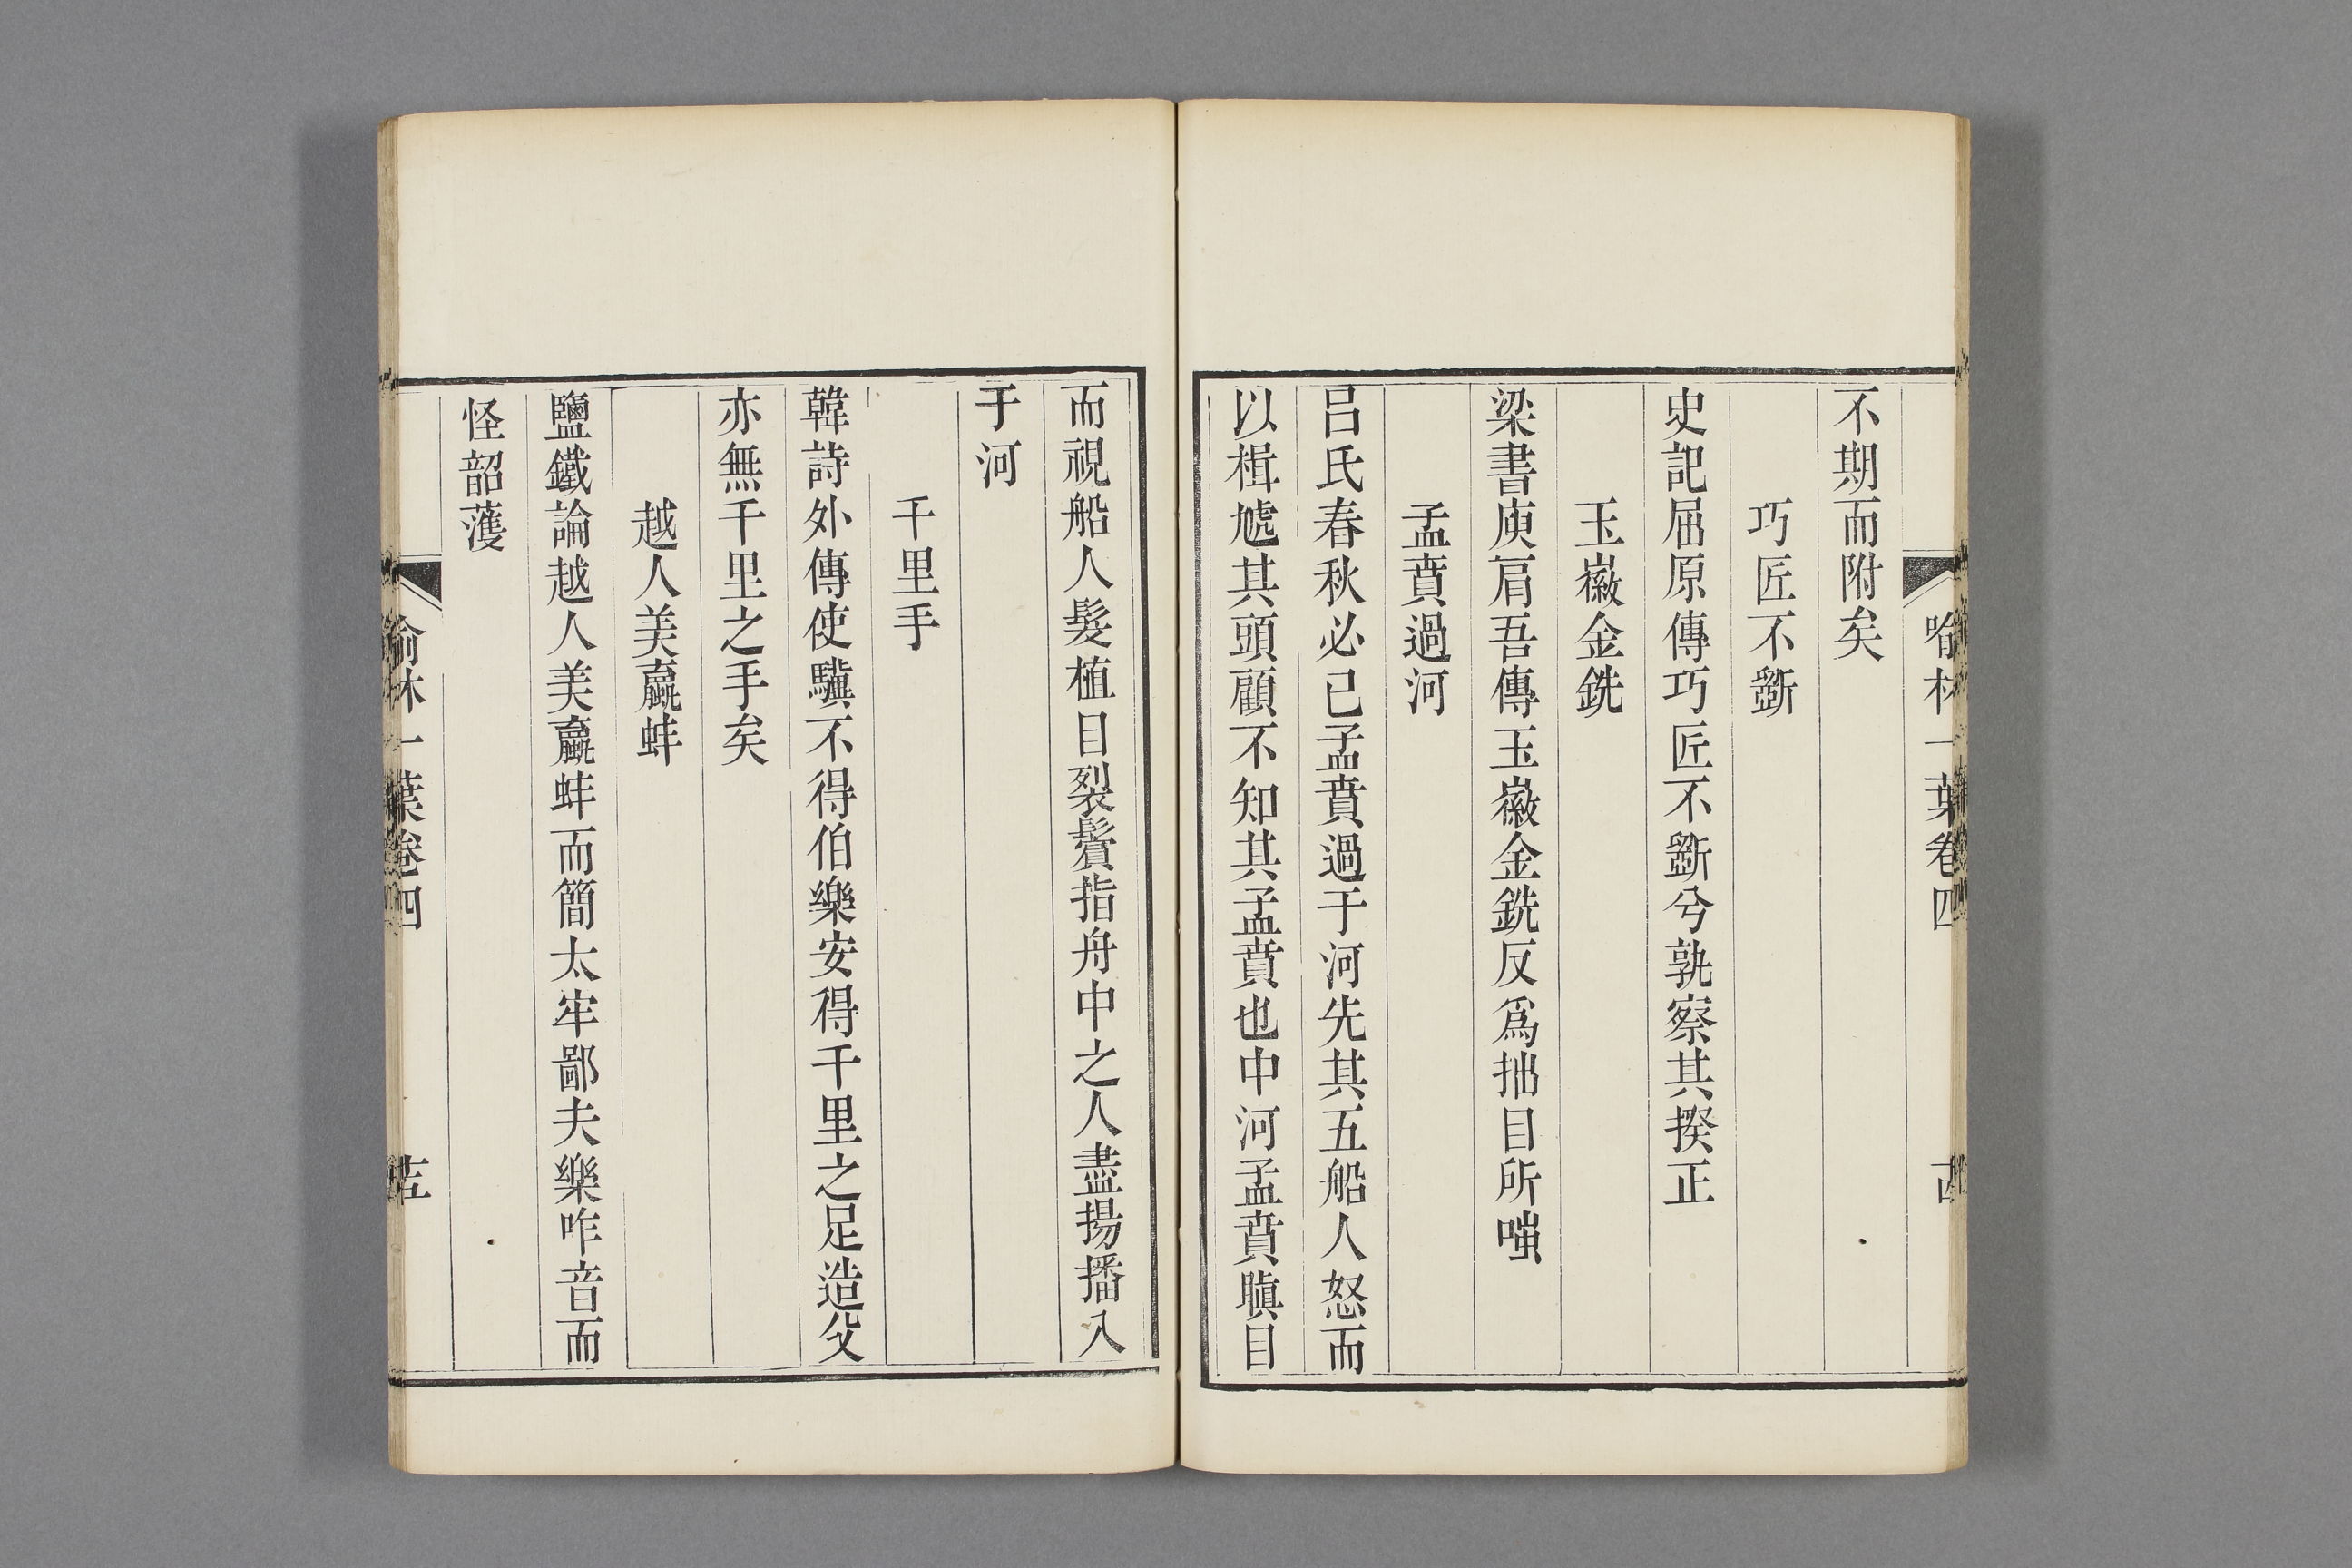 不期而附矣
巧匠不斵
史記屈原傳巧匠不斵兮孰察其揆正
玉徽金銑
梁書庾肩吾傳玉徽金銑反爲拙目所嗤
孟賁過河
呂氏春秋必已孟賁過于河先其五船人怒而
以楫虓其頭顧不知其孟賁也中河孟賁瞋目
而視船人髮植目裂鬢指舟中之人盡揚播入
于河
千里手
韓詩外傳使驥不得伯樂安得千里之足造父
亦無千里之手矣
越人美蠃蚌
鹽鐵論越人美蠃蚌而簡太牢鄙夫樂咋音而
怪韶濩
喻林一葉卷四